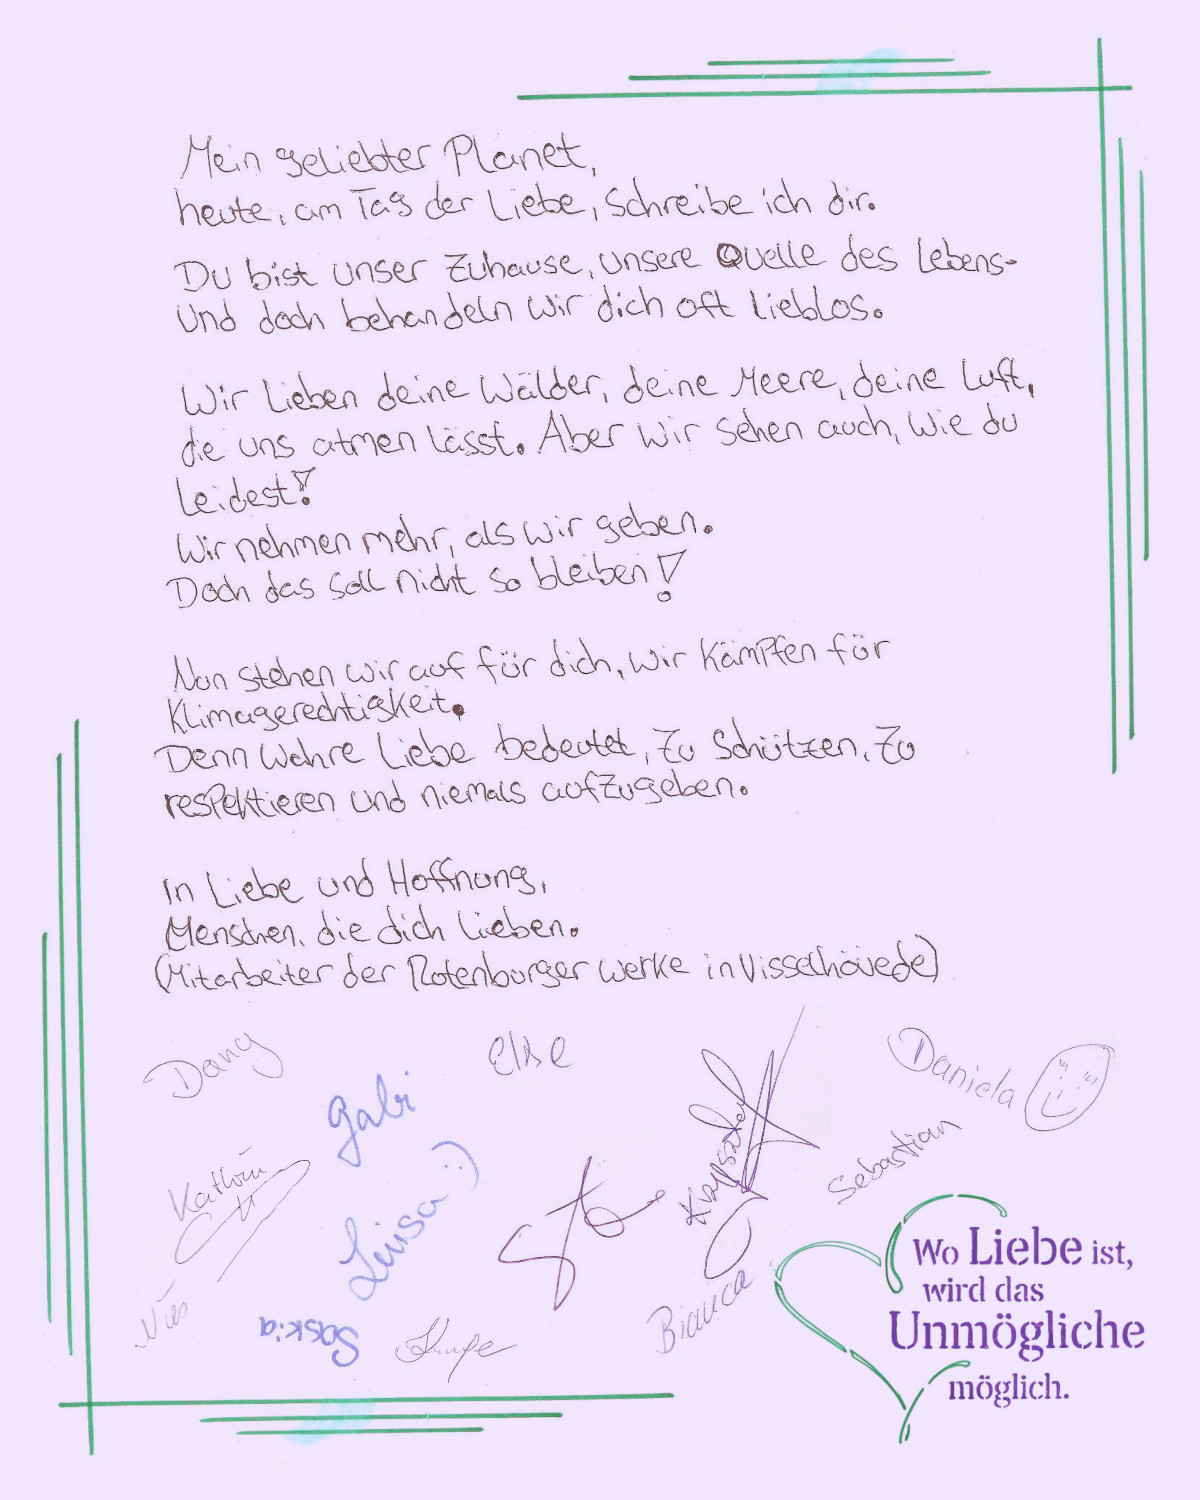 Mein geliebter Planet,
heute, am Tag der Liebe, schreibe ich dir.
Du bist unser Zuhause, unsere Quelle des Lebens-
Und doch behandeln wir dich oft lieblos.
Wir lieben deine Wälder, deine Meere, deine Luft,
die uns atmen lässt. Aber wir sehen auch, wie du
leidest!
Wir nehmen mehr, als wir geben.
Doch das soll nicht so bleiben!
Nun stehen wir auf für dich, wir kämpfen für
Klimagerechtigkeit.
Denn wahre Liebe bedeutet, zu schützen, zu
respektieren und niemals aufzugeben.
In Liebe und Hoffnung,
Menschen, die dich lieben.
(Mitarbeiter der Rotenburger Werke in Visselhövede)
Dany
Else
Daniela
Gabi
Sebastian
Kathrin
Luisa :)
Bianca
Saskia
Wo Liebe ist,
wird das
Unmögliche
möglich.